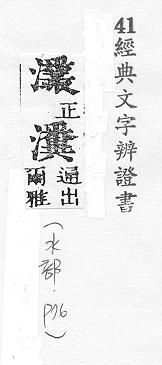 41經典文字辨證書
正
通出
爾雅
(水部.p76)